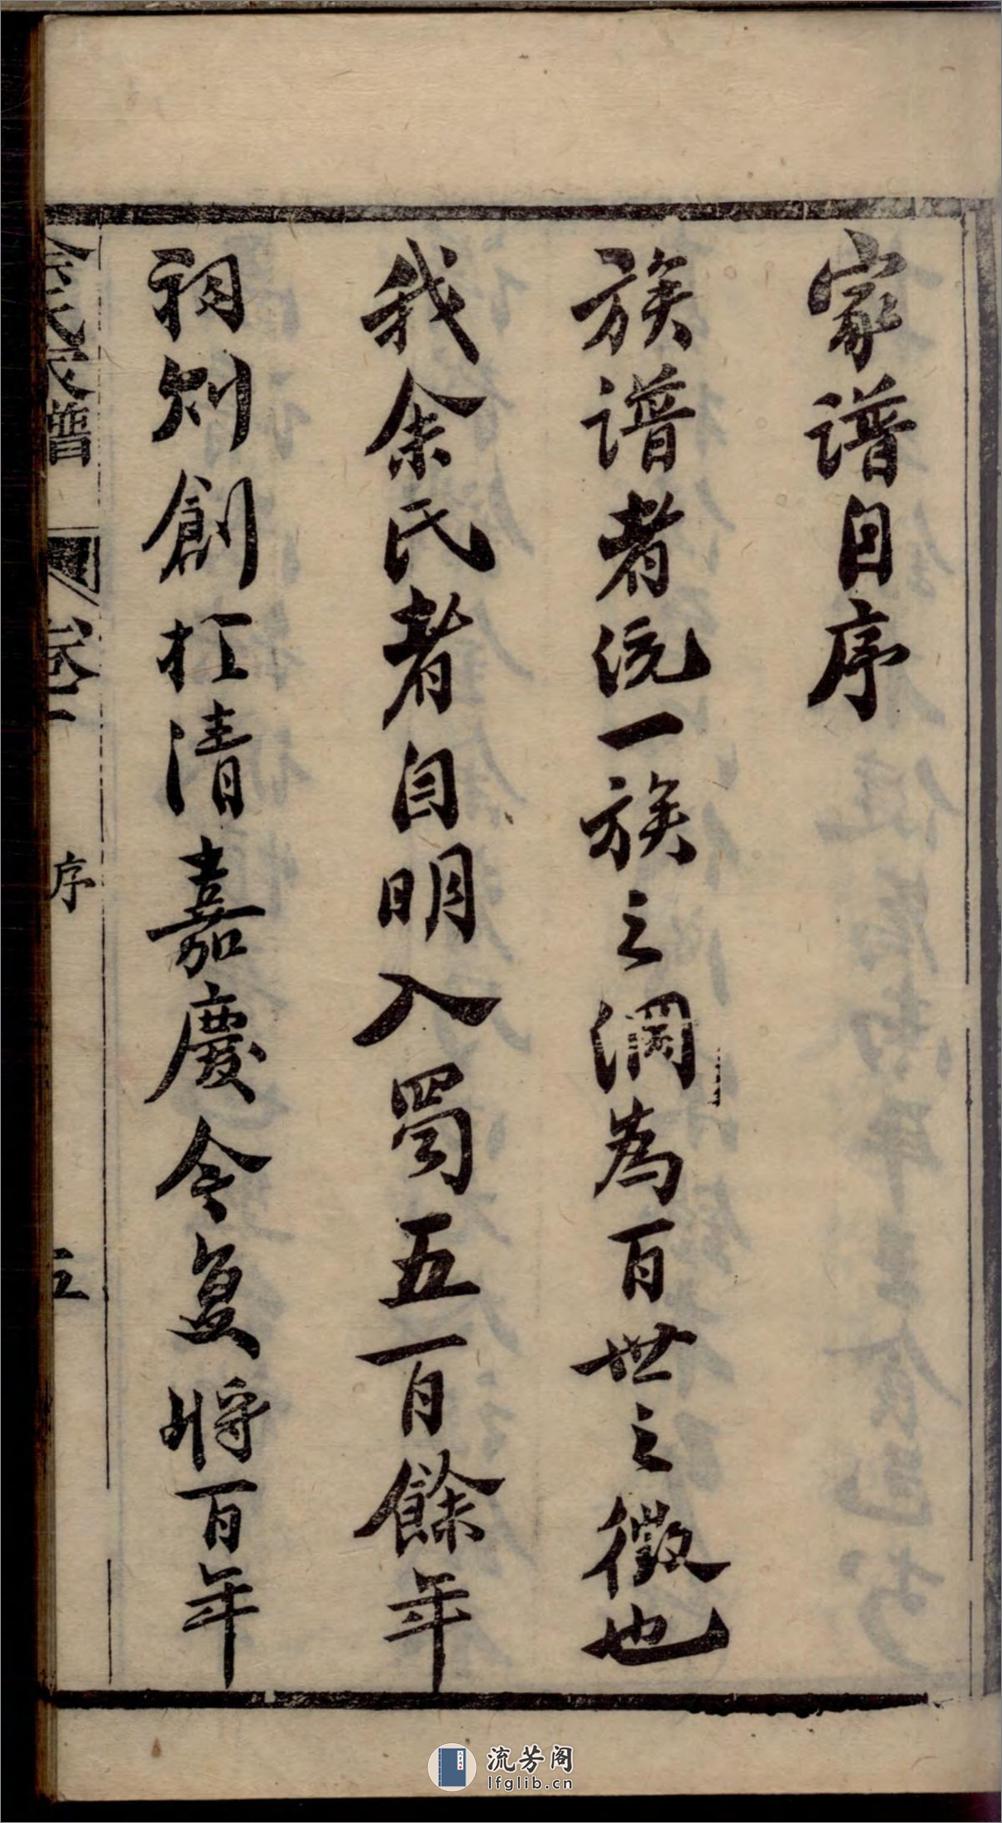 家譜自序
族譜者統一族之綱為百世之徵也
我余氏者自明入蜀五百餘年
祠則創於清嘉慶今復將百年
余氏家譜
卷一
序
五
流芳阁
lfglib.cn